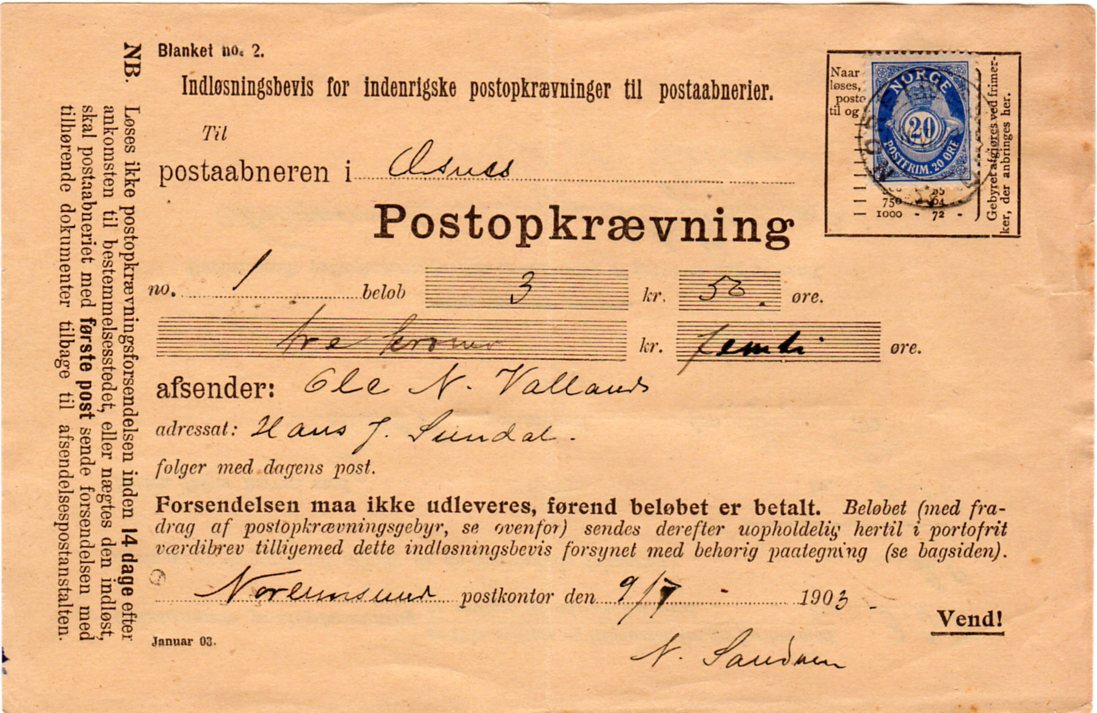 Blanket no. 2.
Indløsningsbevis for indenrigske postopkrævninger til postaabnerier.
Til
postaabneren i
Postopkrævning
no. 1 beløb 3 kr. 50. øre.
tre kroner kr. femti øre.
afsender: Ole N. Vallands
adressat: Hans J. Sundal.
følger med dagens post.
Forsendelsen maa ikke udleveres, førend beløbet er betalt. Beløbet (med fra-
drag af postopkrævningsgebyr, se ovenfor) sendes derefter uopholdelig hertil i portofrit
værdibrev tilligemed dette indløsningsbevis forsynet med behørig paategning (se bagsiden).
Noreimsund postkontor den 9/7 1903
Vend!
Januar 03.
N. Sandven
NB. Løses ikke postopkrævningsforsendelsen inden 14 dage efter
ankomsten til bestemmelsesstedet, eller nægtes den indløst,
skal postaabneriet med første post sende forsendelsen med
tilhørende dokumenter tilbage til afsendelsespostanstalten.
Naar
løses,
posto
til og
NORGE
20
POSTFRIM. 20 ØRE
750
1000 - 72 -
Gebyret afgjøres ved frimer-
ker, der anbringes her.